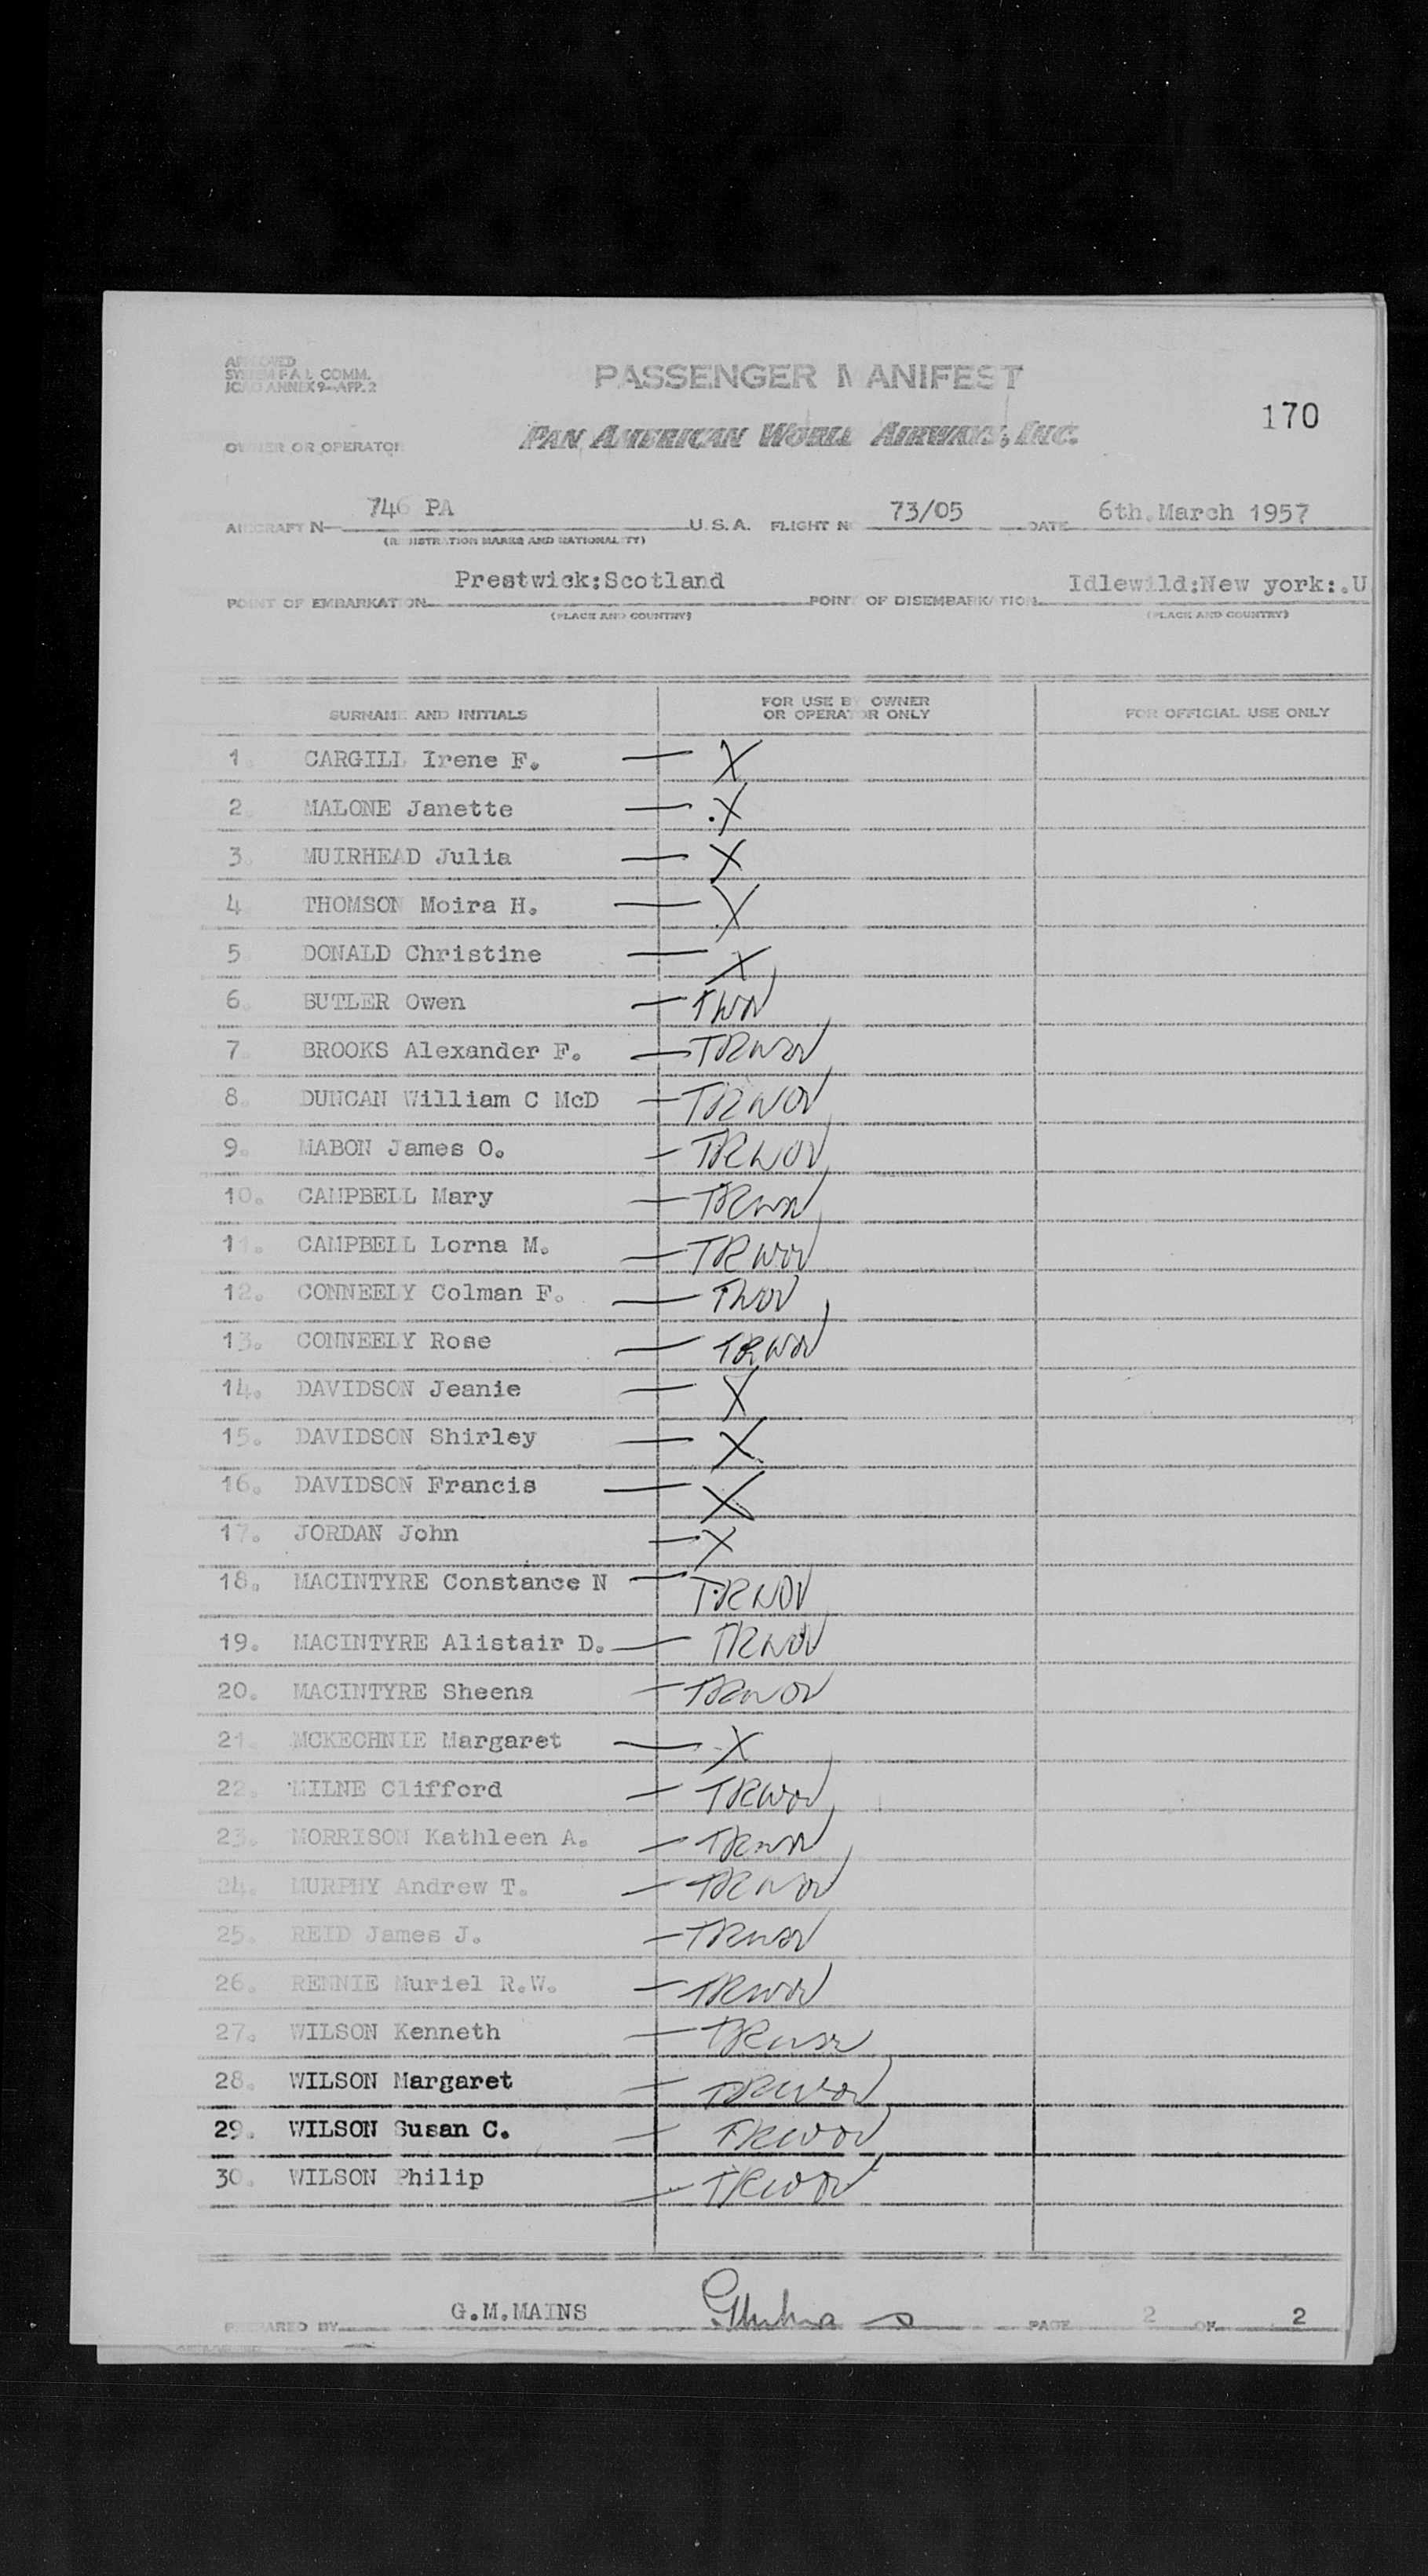 APPROVED
SYSTEM F.A.L. COMM.
ICAO ANNEX 9-APP. 2
PASSENGER MANIFEST
170
OWNER OR OPERATOR
PAN AMERICAN WORLD AIRWAYS, INC.
AIRCRAFT N 746 PA U.S.A. FLIGHT N 73/05 DATE 6th.March 1957
(REGISTRATION MARKS AND NATIONALITY)
POINT OF EMBARKATION Prestwick:Scotland POINT OF DISEMBARKATION Idlewild:New york:.U
(PLACE AND COUNTRY) (PLACE AND COUNTRY)
SURNAME AND INITIALS FOR USE BY OWNER OR OPERATOR ONLY FOR OFFICIAL USE ONLY
1. CARGILL Irene F. — X
2. MALONE Janette — X
3. MUIRHEAD Julia — X
4. THOMSON Moira H. — X
5. DONALD Christine — X
6. BUTLER Owen —
7. BROOKS Alexander F. — TRWOV
8. DUNCAN William C McD — TRWOV
9. MABON James O. — TRWOV
10. CAMPBELL Mary — TRWOV
11. CAMPBELL Lorna M. — TRWOV
12. CONNEELY Colman F. — TWOV
13. CONNEELY Rose — TRWOV
14. DAVIDSON Jeanie — X
15. DAVIDSON Shirley — X
16. DAVIDSON Francis — X
17. JORDAN John — X
18. MACINTYRE Constance N — TRWOV
19. MACINTYRE Alistair D. — TRWOV
20. MACINTYRE Sheena — TRWOV
21. MCKECHNIE Margaret — X
22. MILNE Clifford — TRWOV
23. MORRISON Kathleen A. — TRWOV
24. MURPHY Andrew T. — TRWOV
25. REID James J. — TRWOV
26. RENNIE Muriel R.W. — TRWOV
27. WILSON Kenneth — TRWOV
28. WILSON Margaret — TRWOV
29. WILSON Susan C. — TRWOV
30. WILSON Philip — TRWOV
PREPARED BY G.M.MAINS PAGE 2 OF 2